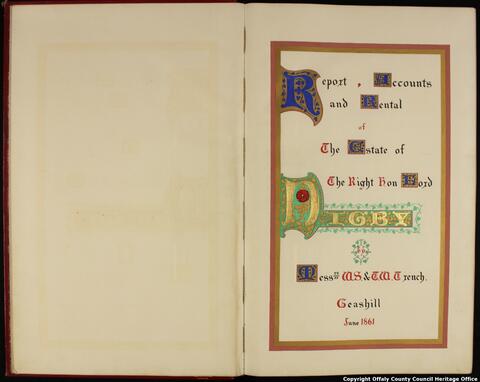 Report, Accounts
and Rental
of
The Estate of
The Right Hon Lord
DIGBY
by
Messrs W.S. & T.W. Trench.
Geashill
June 1861
Copyright Offaly County Council Heritage Office